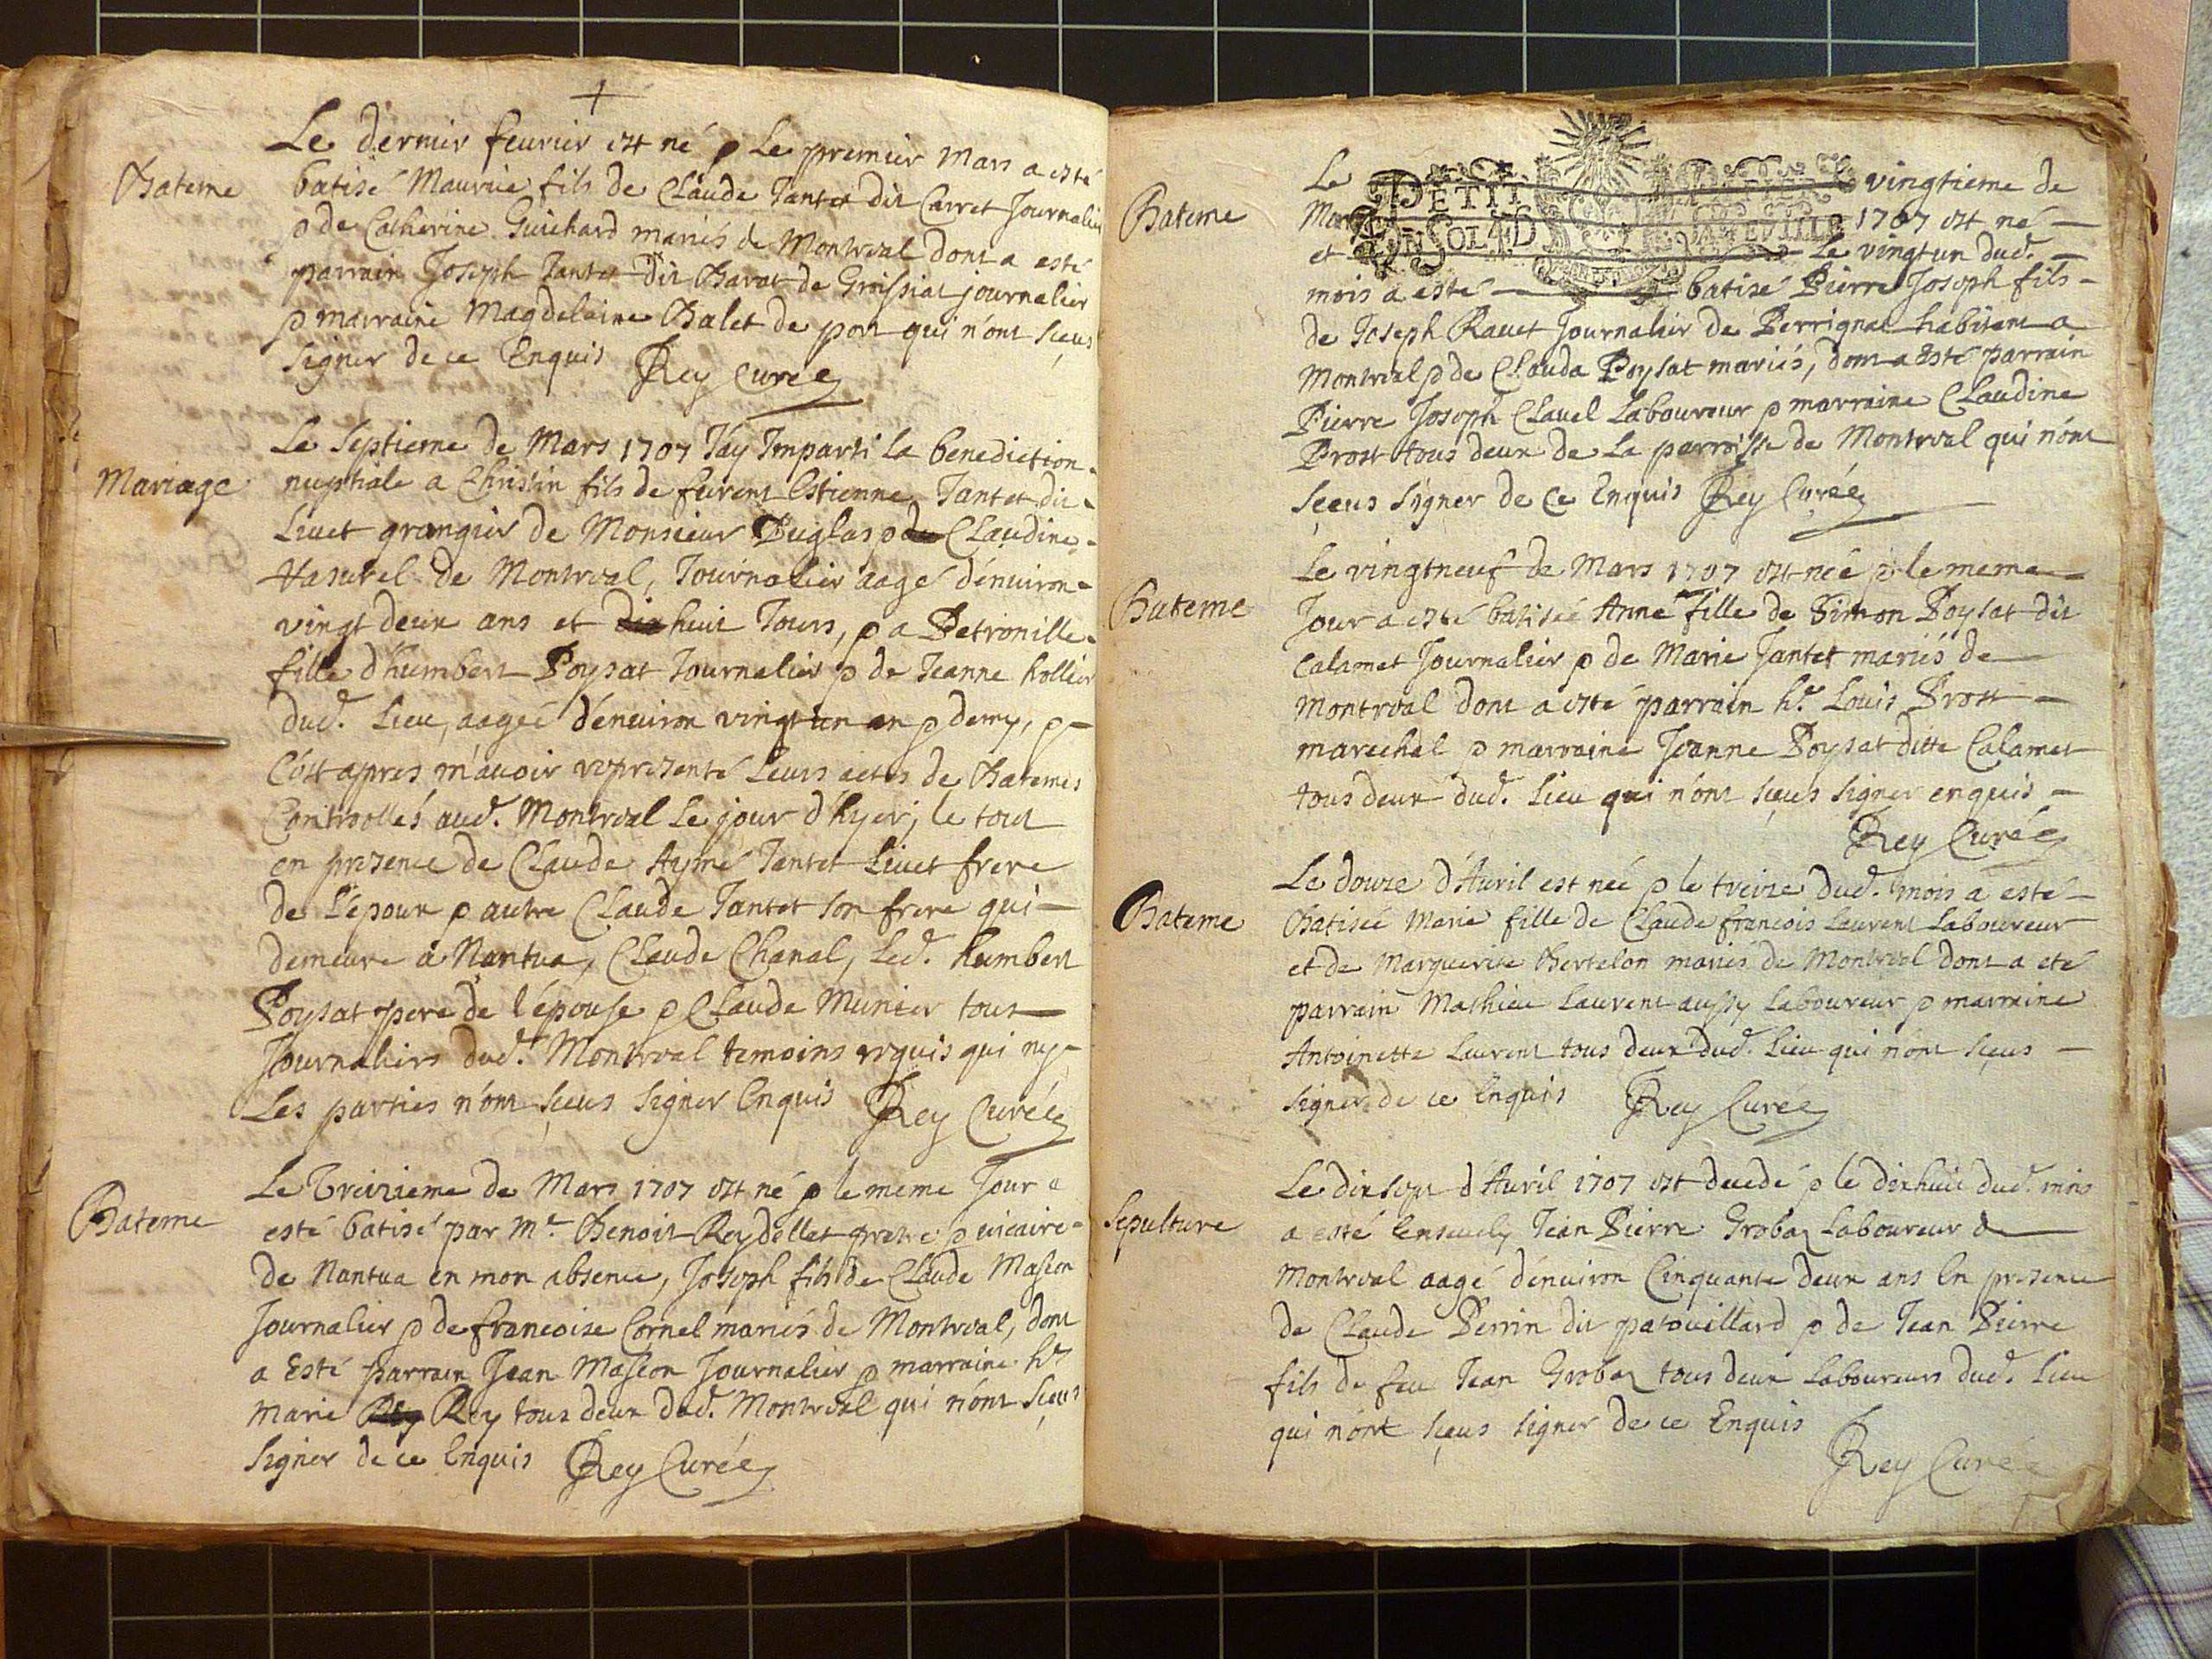 Le dernier feurier est né & Le premier Mars a esté
Bateme
batisé Maurice fils de Claude Jantet dit Carret Journalier
& de Catherine Guichard mariés de Montreal dont a esté
parrain Joseph Jantet dit Bavat de Groissiat journalier
& marraine Magdelaine Balet de port qui n'ont sçeus
signer de ce Enquis Rey Curé
Le Septieme de Mars 1707 J'ay Imparti la benediction
Mariage
nuptiale a Christin fils de furent Estienne Jantet dit
Livet grangier de Monsieur Duglas & de Claudine
de Montreal, Journalier aagé d'enuiron
vingt deux ans et dix huit Jours, & a Petronille
fille d'humbert Poysat Journalier & de Jeanne hollier
dud. Lieu, aageé d'enuiron vingt un an & demy, &
C'est apres m'auoir representé Leurs actes de Batemes
Controollés aud. Montreal Le jour d'hyer, le tout
en presence de Claude Aymé Jantet Livet frere
de L'époux & autre Claude Jantet son frere qui
demeure a Nantua, Claude Chanal, Led. humbert
Poysat pere de l'épouse & Claude Munier tous
Journaliers dud. Montreal temoins requis qui ny
Les parties n'ont sçeus signer Enquis Rey Curé
Le Treizieme de Mars 1707 est né & le meme Jour a
Bateme
esté batisé par Mre. Benoit Reydellet pretre & vicaire
de Nantua en mon absence, Joseph fils de Claude Masson
Journalier & de francoise Cornel mariés de Montreal, dont
a Esté parrain Jean Masson Journalier & marraine hte
Marie Rey Rey tous deux dud. Montreal qui n'ont sçeus
signer de ce Enquis Rey Curé
PETIT PAPIER
UN SOL 4 D LA FEUILLE
Le vingtieme de
Bateme
Mars 1707 est né
et Le vingtun dud.
mois a esté batisé Pierre Joseph fils
de Joseph Ravet Journalier de Perrignat habitant a
Montreal & de Clauda Poysat mariés, dont a Esté parrain
Pierre Joseph Clavel Laboureur & marraine Claudine
Prost tous deux de La parroisse de Montreal qui n'ont
sçeus signer de Ce Enquis Rey Curé
Le vingtneuf de Mars 1707 est née & le meme
Bateme
Jour a esté batisée Anne fille de Simon Poysat dit
Calamet Journalier & de Marie Jantet mariés de
Montreal dont a esté parrain he. Louis Prost
marechal & marraine Jeanne Poysat ditte Calamet
tous deux dud. Lieu qui n'ont sçeus signer enquis
Rey Curé
Le douze d'Auril est née & le treize dud. mois a esté
Bateme
Batisée Marie fille de Claude francois Laurent Laboureur
et de Marguerite Bertelon mariés de Montreal dont a eté
parrain Mathieu Laurent aussy Laboureur & marraine
Antoinette Laurent tous deux dud. Lieu qui n'ont sçeus
signer de ce Enquis Rey Curé
Le dixsept d'Auril 1707 est decedé & le dixhuit dud. mois
Sepulture
a esté Enseuely Jean Pierre Grobaz Laboureur de
Montreal aagé d'enuiron Cinquante deux ans En presence
de Claude Perrin dit patouillard & de Jean Pierre
fils de feu Jean Grobaz tous deux Laboureurs dud. Lieu
qui n'ont sçeus signer de ce Enquis
Rey Curé